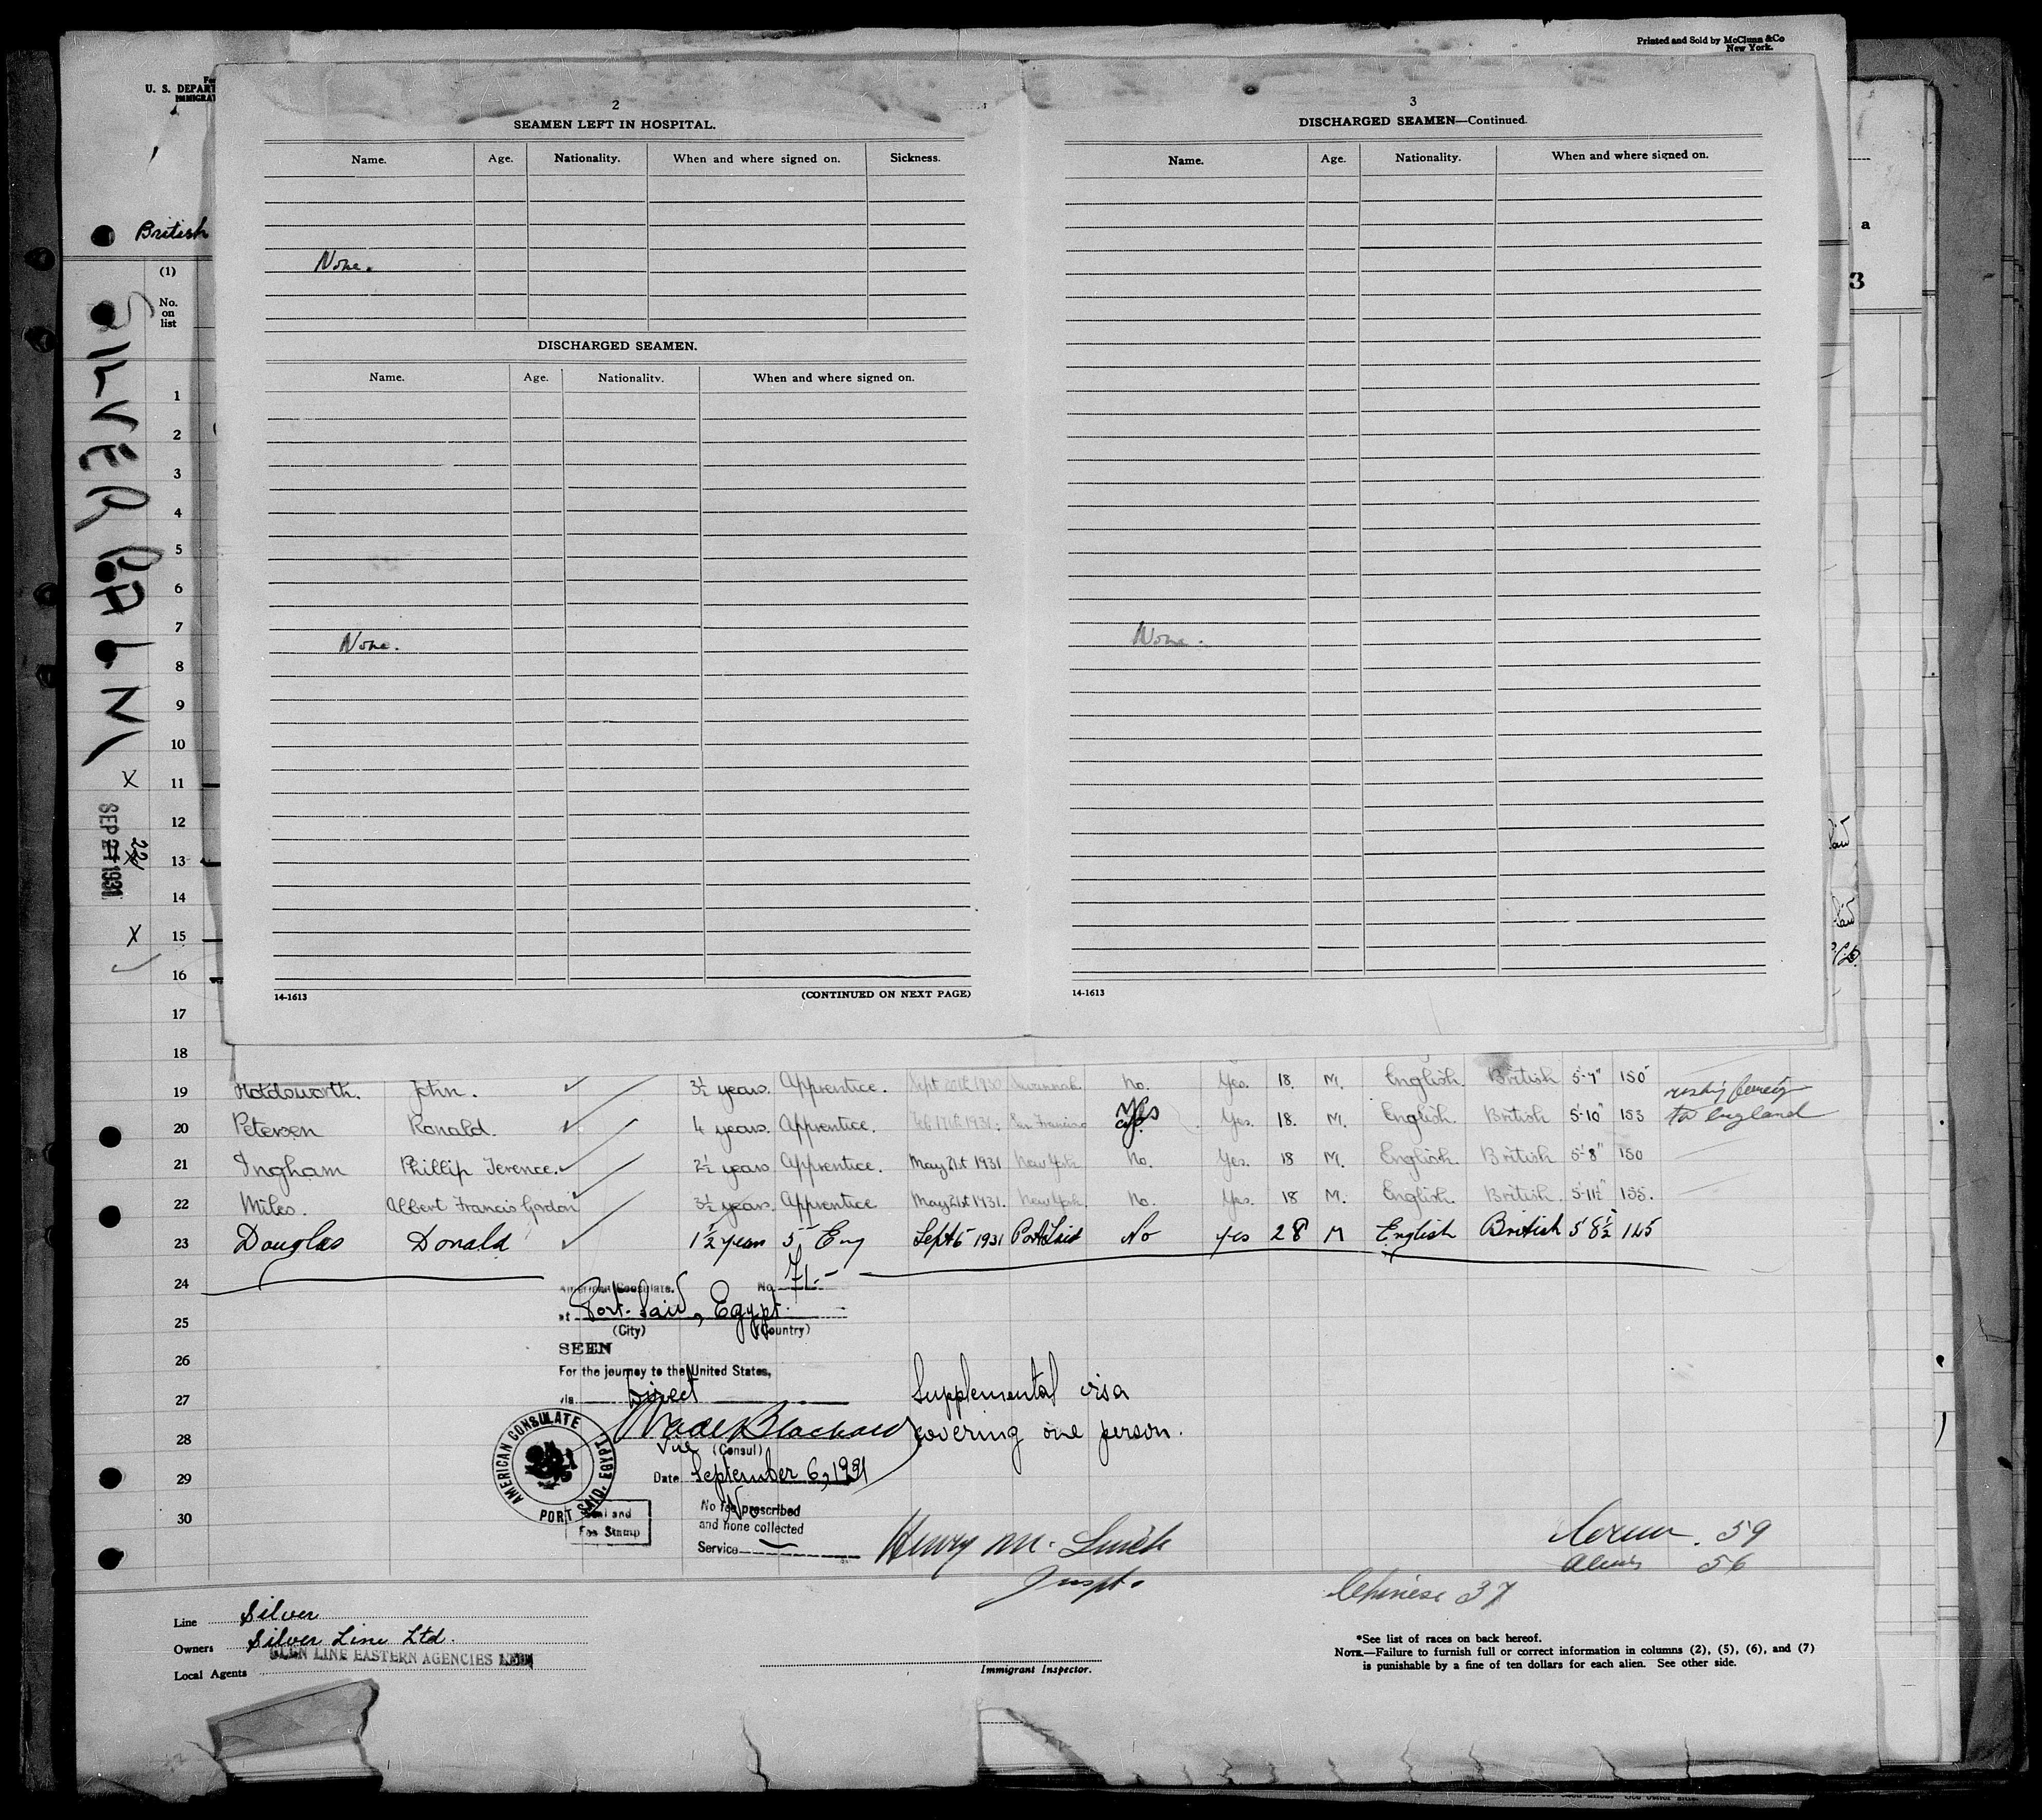 Printed and Sold by McClunn & Co
New York.
U. S. DEPART
IMMIGRA
British
(1)
No.
on
list
SILVER PALM
SEP 1931
2
SEAMEN LEFT IN HOSPITAL.
Name. Age. Nationality. When and where signed on. Sickness.
None.
DISCHARGED SEAMEN.
Name. Age. Nationality. When and where signed on.
None.
14-1613 (CONTINUED ON NEXT PAGE)
3
DISCHARGED SEAMEN—Continued.
Name. Age. Nationality. When and where signed on.
None.
14-1613
a
3
1
2
3
4
5
6
7
8
9
10
X 11
12
13
14
X 15
16
17
18
19 Holdsworth. John. 3½ years. Apprentice. Sept 20th 1930 Savannah. No. Yes. 18. M. English. British 5'-7" 150
20 Petersen Ronald. 4 years. Apprentice. Feb 17th 1931. San Francisco Yes Yes. 18. M. English. British 5'-10" 153 to England
21 Ingham Phillip Terence. 2½ years Apprentice. May 21st 1931 New York. No. Yes. 18 M. English. British 5'-8" 150
22 Miles. Albert Francis Gordon 3½ years. Apprentice May 21st 1931. New York. No. Yes. 18 M. English. British. 5'-11½" 155.
23 Douglas Donald 1½ year 5 Eng Sept 6 1931 Port Said No Yes 28 M English British 5'8½" 145
24
25
26
27
28
29
30
American Consulate. No. 71.-
at Port-Said, Egypt.
(City) (Country)
SEEN
For the journey to the United States,
via Direct
Supplemental visa
covering one person.
Vice (Consul)
Date September 6, 1931
AMERICAN CONSULATE
PORT SAID, EGYPT
Seal and
Fee Stamp
No fee prescribed
and none collected
Service
Henry M. Smith
Inspt.
59
Aliens 56
Chinese 37
Line Silver
Owners Silver Line Ltd.
GLEN LINE EASTERN AGENCIES
Local Agents
Immigrant Inspector.
*See list of races on back hereof.
NOTE.—Failure to furnish full or correct information in columns (2), (5), (6), and (7)
is punishable by a fine of ten dollars for each alien. See other side.